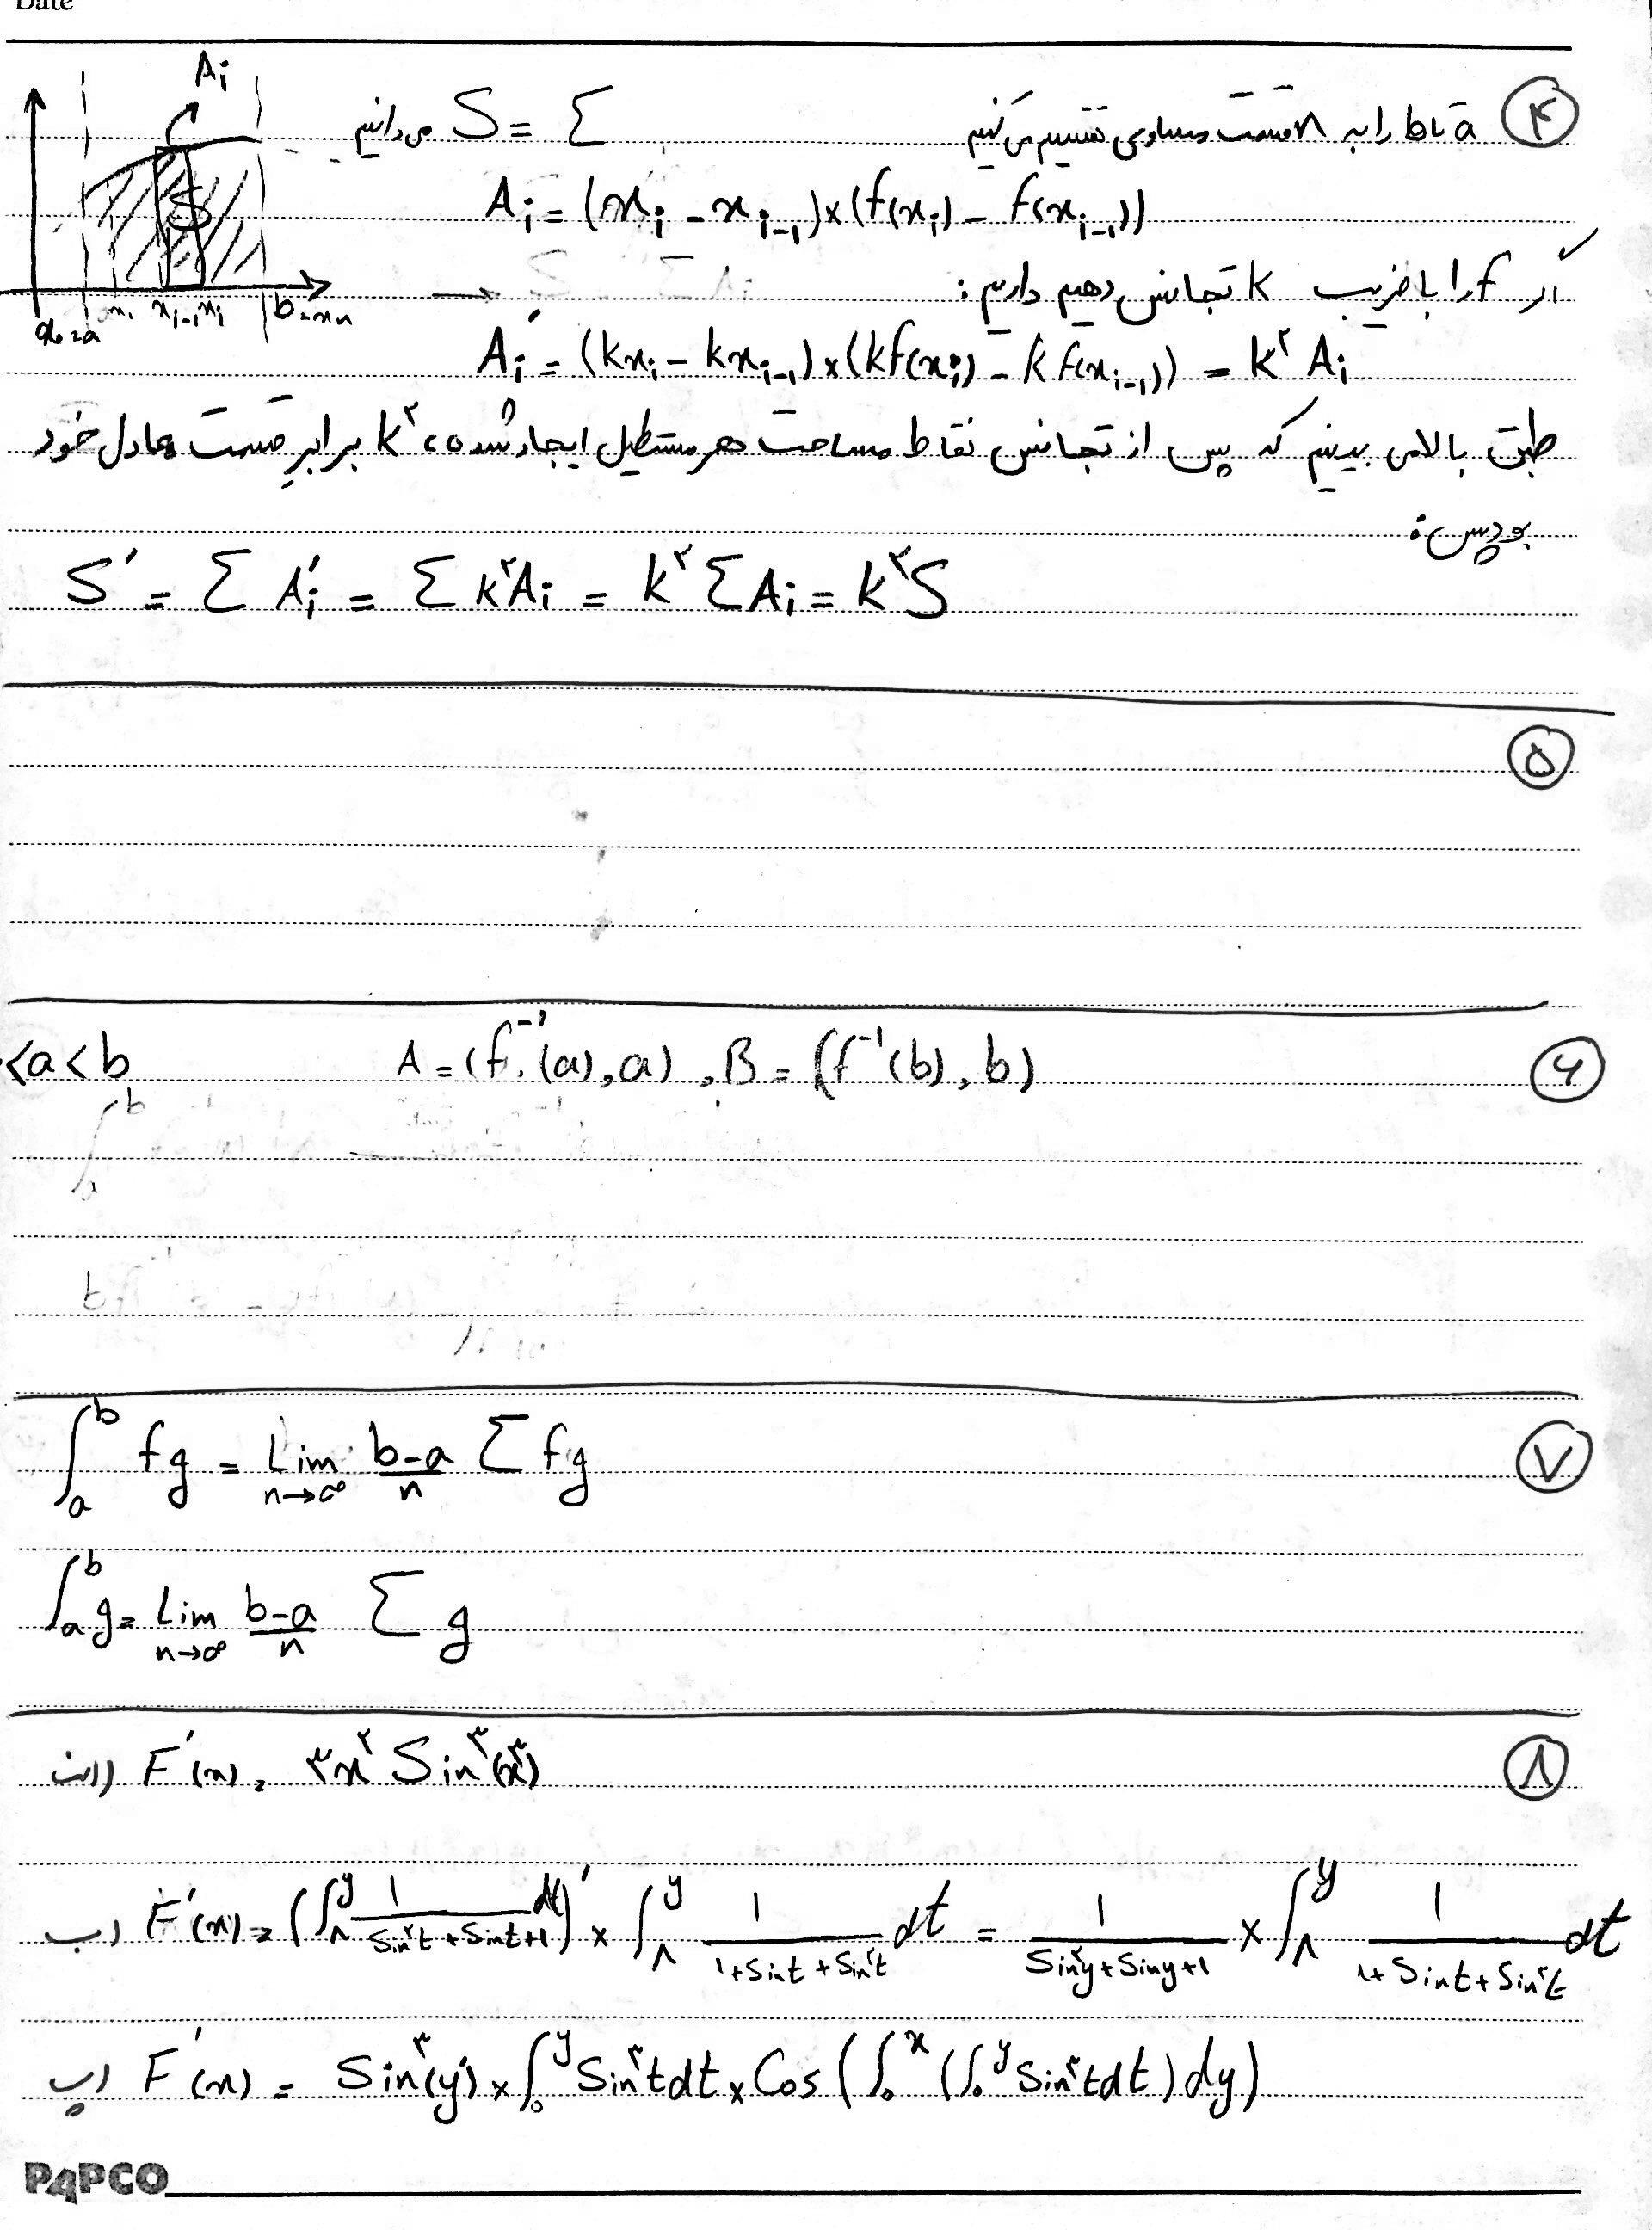 Date
۴ a تا b را به n قسمت مساوی تقسیم می‌کنیم می‌دانیم S = Σ
Ai
S
x₀=a x₁ xi-1 xi b=xn
Ai = (xi - xi-۱) × (f(xi) - f(xi-۱))
اگر f را با ضریب k تجانس دهیم داریم:
A'i = (kxi - kxi-۱) × (kf(xi) - kf(xi-۱)) = k² Ai
طبق بالا می بینیم که پس از تجانس نقاط مساحت هر مستطیل ایجاد شده، k² برابر قسمت معادل خود
بود پس:
S' = Σ A'i = Σ k²Ai = k² ΣAi = k²S
۵
۶ <a<b A = (f⁻¹(a), a), B = (f⁻¹(b), b)
۷ ∫ₐᵇ fg = Lim n→∞ b-a/n Σ fg
∫ₐᵇ g = Lim n→∞ b-a/n Σ g
۸ الف) F'(x) = ۳x² Sin³(x³)
ب) F'(x) = (∫₈ʸ 1/(Sin²t + Sint + 1) dt)' × ∫₈ʸ 1/(1 + Sint + Sin²t) dt = 1/(Sin²y + Siny + 1) × ∫₈ʸ 1/(1 + Sint + Sin²t) dt
پ) F'(x) = Sin³(y) × ∫₀ʸ Sin³t dt × Cos(∫₀ˣ (∫₀ʸ Sin³t dt) dy)
PAPCO